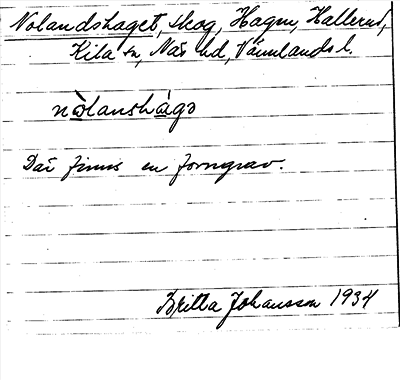 Nolandshaget, skog, Hagen, Hallerud,
Kila sn, Näs hd, Värmlands l.
nòlanshágə
Där finns en forngrav.
Britta Johansson 1934